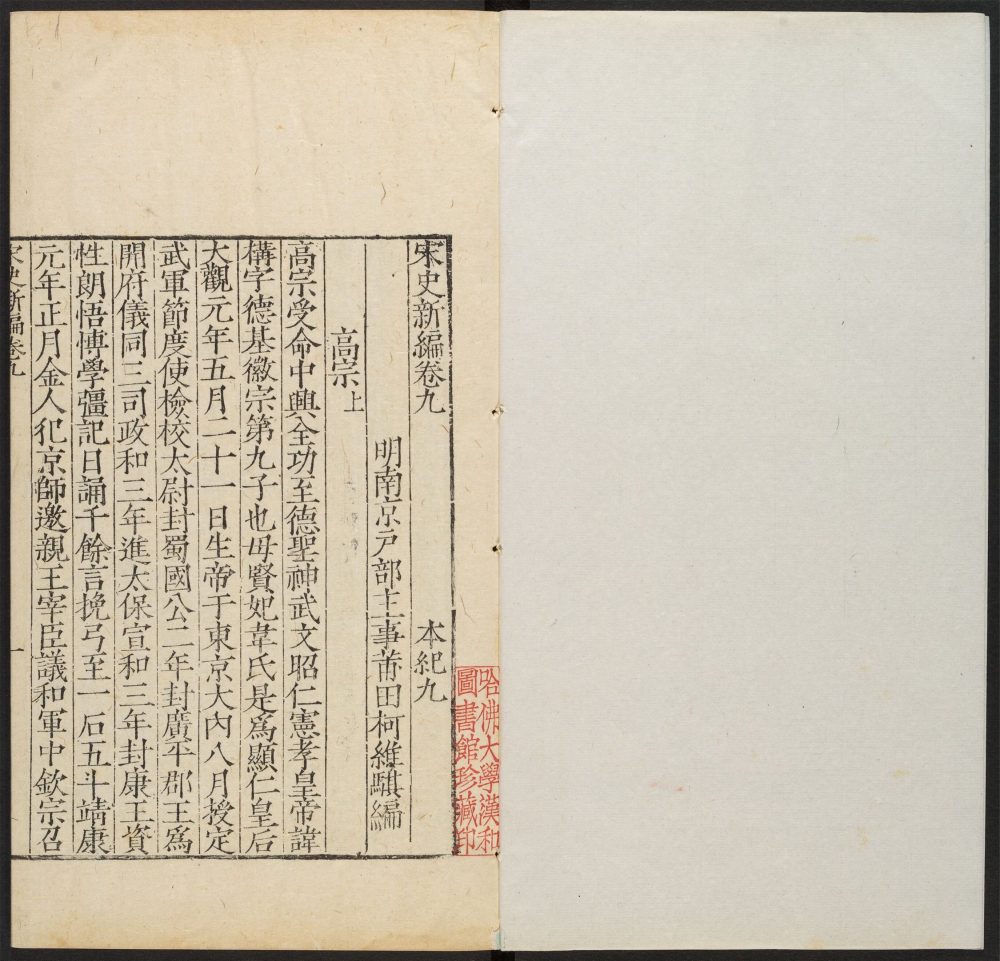 宋史新編卷九 本紀九
明南京戶部主事莆田柯維騏編
高宗上
高宗受命中興全功至德聖神武文昭仁憲孝皇帝諱
構字德基徽宗第九子也母賢妃韋氏是爲顯仁皇后
大觀元年五月二十一日生帝于東京大內八月授定
武軍節度使檢校太尉封蜀國公二年封廣平郡王爲
開府儀同三司政和三年進太保宣和三年封康王資
性朗悟博學彊記日誦千餘言挽弓至一石五斗靖康
元年正月金人犯京師邀親王宰臣議和軍中欽宗召
宋史新編卷九 一
哈佛大學漢和
圖書館珍藏印